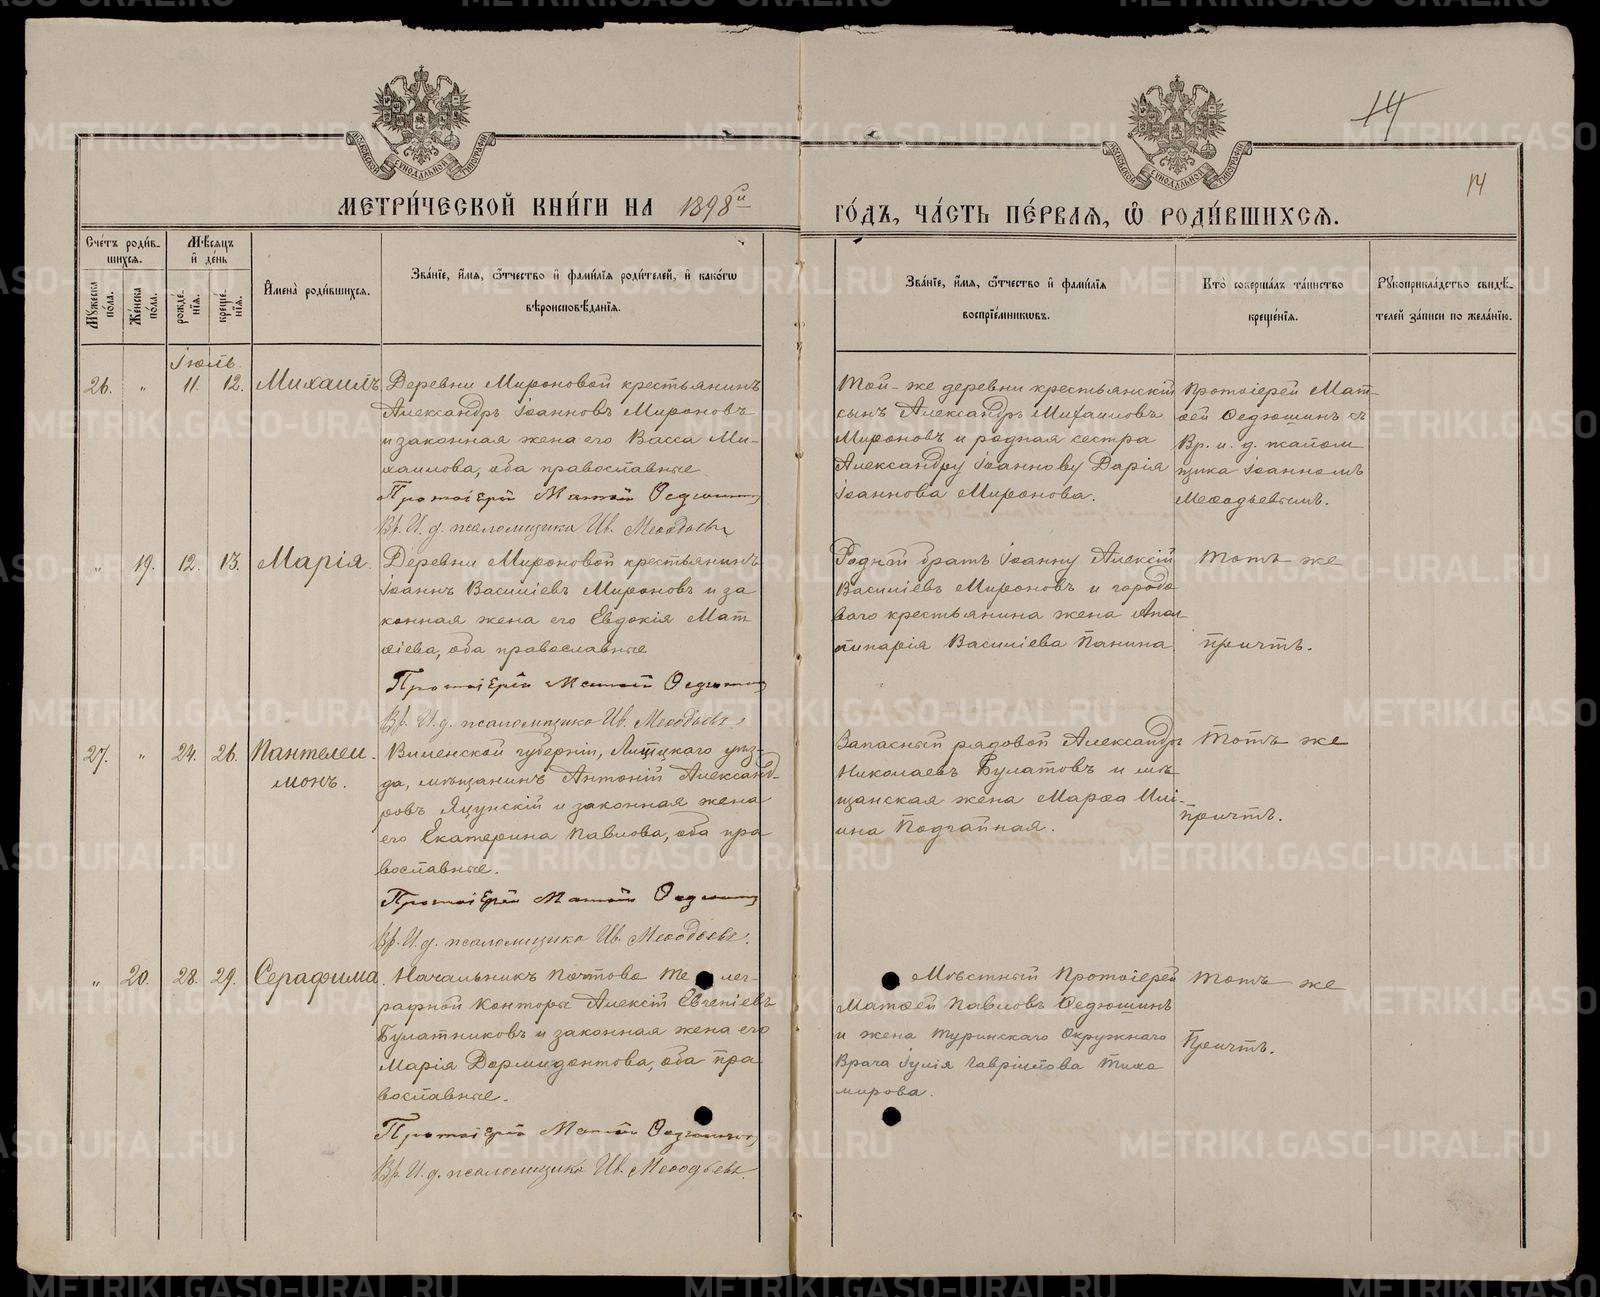 14
14
МОСКОВСКОЙ СѴНОДАЛЬНОЙ ТИПОГРАФІИ
МОСКОВСКОЙ СѴНОДАЛЬНОЙ ТИПОГРАФІИ
МЕТРИ́ЧЕСКОЙ КНИ́ГИ НА 1898й ГО́ДЪ, ЧА́СТЬ ПЕ́РВАЯ, Ѽ РОДИ́ВШИХСЯ.
Сче́тъ роди́в-
шихся.
Мꙋ́жеска по́ла.
Же́нска по́ла.
Мѣ́сяцъ и де́нь
рожде́-
нїя.
креще́-
нїя.
И҆мена̀ роди́вшихся.
Зва́нїе, и҆́мя, ѻ҆́тчество и҆ фами́лїя роди́телей, и҆ како́гѡ
вѣроисповѣ́данїя.
Зва́нїе, и҆́мя, ѻ҆́тчество и҆ фами́лїя
воспрїе́мникѡвъ.
Кто̀ соверша́лъ та́инство
креще́нїя.
Рꙋкоприкла́дство свидѣ́-
телей за́писи по жела́нїю.
Іюль.
26. " 11. 12. Михаилъ.
Деревни Мироновой крестьянинъ
Александръ Іоанновъ Мироновъ
и законная жена его Васса Ми-
хаилова, оба православные.
Протоіерей Матѳей Ѳедюшинъ
Вр. И. д. псаломщика Ив. Меѳодьевъ
Той-же деревни крестьянскій
сынъ Александръ Михаиловъ
Мироновъ и родная сестра
Александру Іоаннову Дарія
Іоаннова Миронова.
Протоіерей Мат-
ѳей Ѳедюшинъ съ
Вр. и. д. псалом
щика Іоанномъ
Меѳодьевымъ.
" 19. 12. 13. Марія.
Деревни Мироновой крестьянинъ
Іоаннъ Василіевъ Мироновъ и за
конная жена его Евдокія Мат
ѳіева, оба православные
Протоіерей Матѳей Ѳедюшинъ
Вр. И. д. псаломщика Ив. Меѳодьевъ.
Родной братъ Іоанну Алексій
Василіевъ Мироновъ и городо
вого крестьянина жена Апол
линарія Василіева Панина
Тотъ же
причтъ.
27. " 24. 26. Пантелеи-
монъ.
Виленской губерніи, Лидскаго уѣз-
да, мѣщанинъ Антоній Александ-
ровъ Яцунскій и законная жена
его Екатерина Павлова, оба пра
вославные.
Протоіерей Матѳей Ѳедюшинъ
Вр. И. д. псаломщика Ив. Меѳодьевъ.
Запасный рядовой Александръ
Николаевъ Булатовъ и мѣ
щанская жена Марѳа Иль-
ина Подчапная.
Тотъ же
причтъ.
" 20. 28. 29. Серафима.
Начальникъ Почтово Теле-
графной Конторы Алексій Евгеніевъ
Булатниковъ и законная жена его
Марія Дормидонтова, оба пра
вославные.
Протоіерей Матѳей Ѳедюшинъ
Вр. И. д. псаломщика Ив. Меѳодьевъ.
Мѣстный Протоіерей
Матѳей Павловъ Ѳедюшинъ
и жена Туринскаго Окружнаго
Врача Іулія Гавріилова Тихо
мирова.
Тотъ же
Причтъ.
METRIKI.GASO-URAL.RU